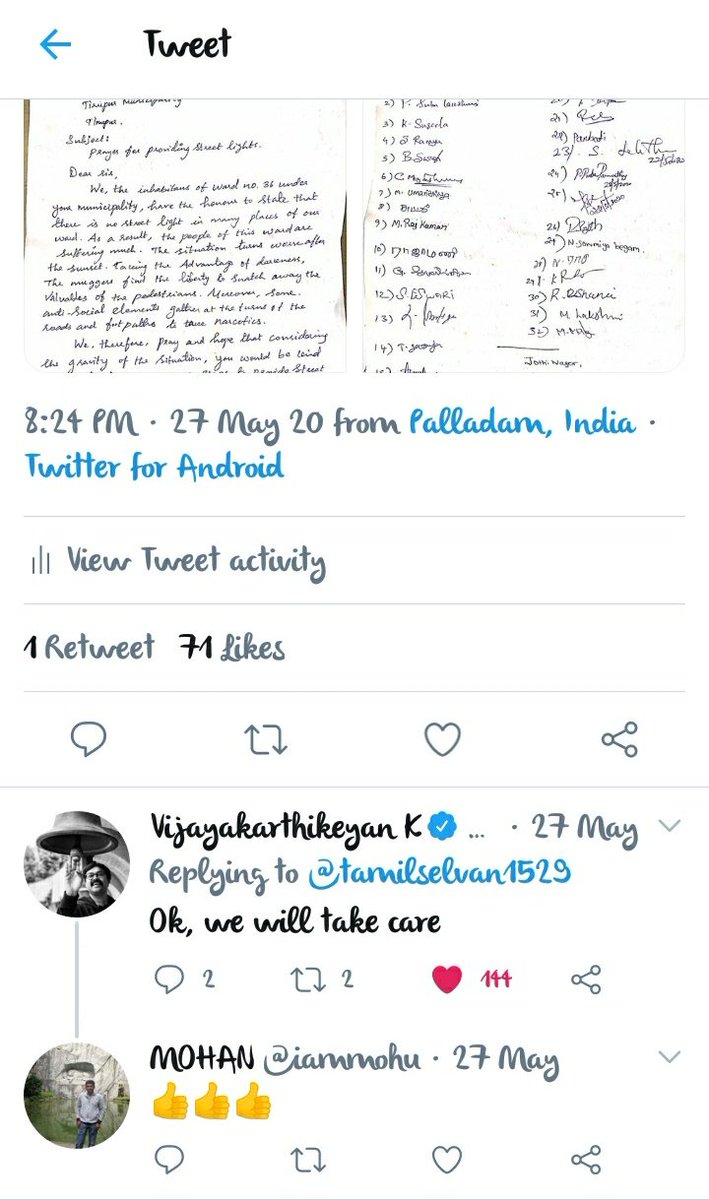 Tweet
Tirupur Municipality
Tirupur.
Subject:
Prayer for providing street lights.
Dear sir,
We, the inhabitans of ward no. 36 under
your municipality, have the honour to State that
there is no street light in many places of our
ward. As a result, the people of this ward are
suffering much. The situation turns worse after
the sunset. Taking the Advantage of darkness,
The muggers find the liberty to snatch away the
Valuables of the pedestrians. Moreover, Some
anti-Social elements gather at the turns of the
roads and foot paths to take narcotics.
We, therefore, pray and hope that considering
the gravity of the situation, you would be kind
Street
3) K. Suseela
4)
5)
6)
7)
8)
9) M. Raj Kumar
10)
11)
12) S. ESWARI
13)
14)
21)
22)
23) S.
24)
25)
26)
27) N.
28) N.
29) K
30) R.
31) M Lakshmi
32) M.
Jothi Nagar.
8:24 PM · 27 May 20 from Palladam, India ·
Twitter for Android
View Tweet activity
1 Retweet 71 Likes
Vijayakarthikeyan K ... · 27 May
Replying to @tamilselvan1529
Ok, we will take care
2 2 144
MOHAN @iammohu · 27 May
👍👍👍